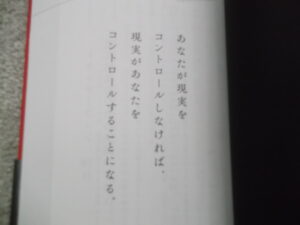 あなたが現実を
コントロールしなければ、
現実があなたを
コントロールすることになる。